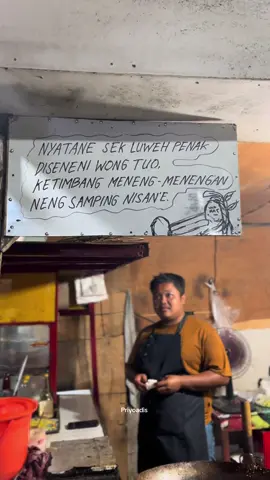 NYATANE SEK LUWEH PENAK
DISENENI WONG TUO.
KETIMBANG MENENG-MENENGAN
NENG SAMPING NISANE.
Priyoadis